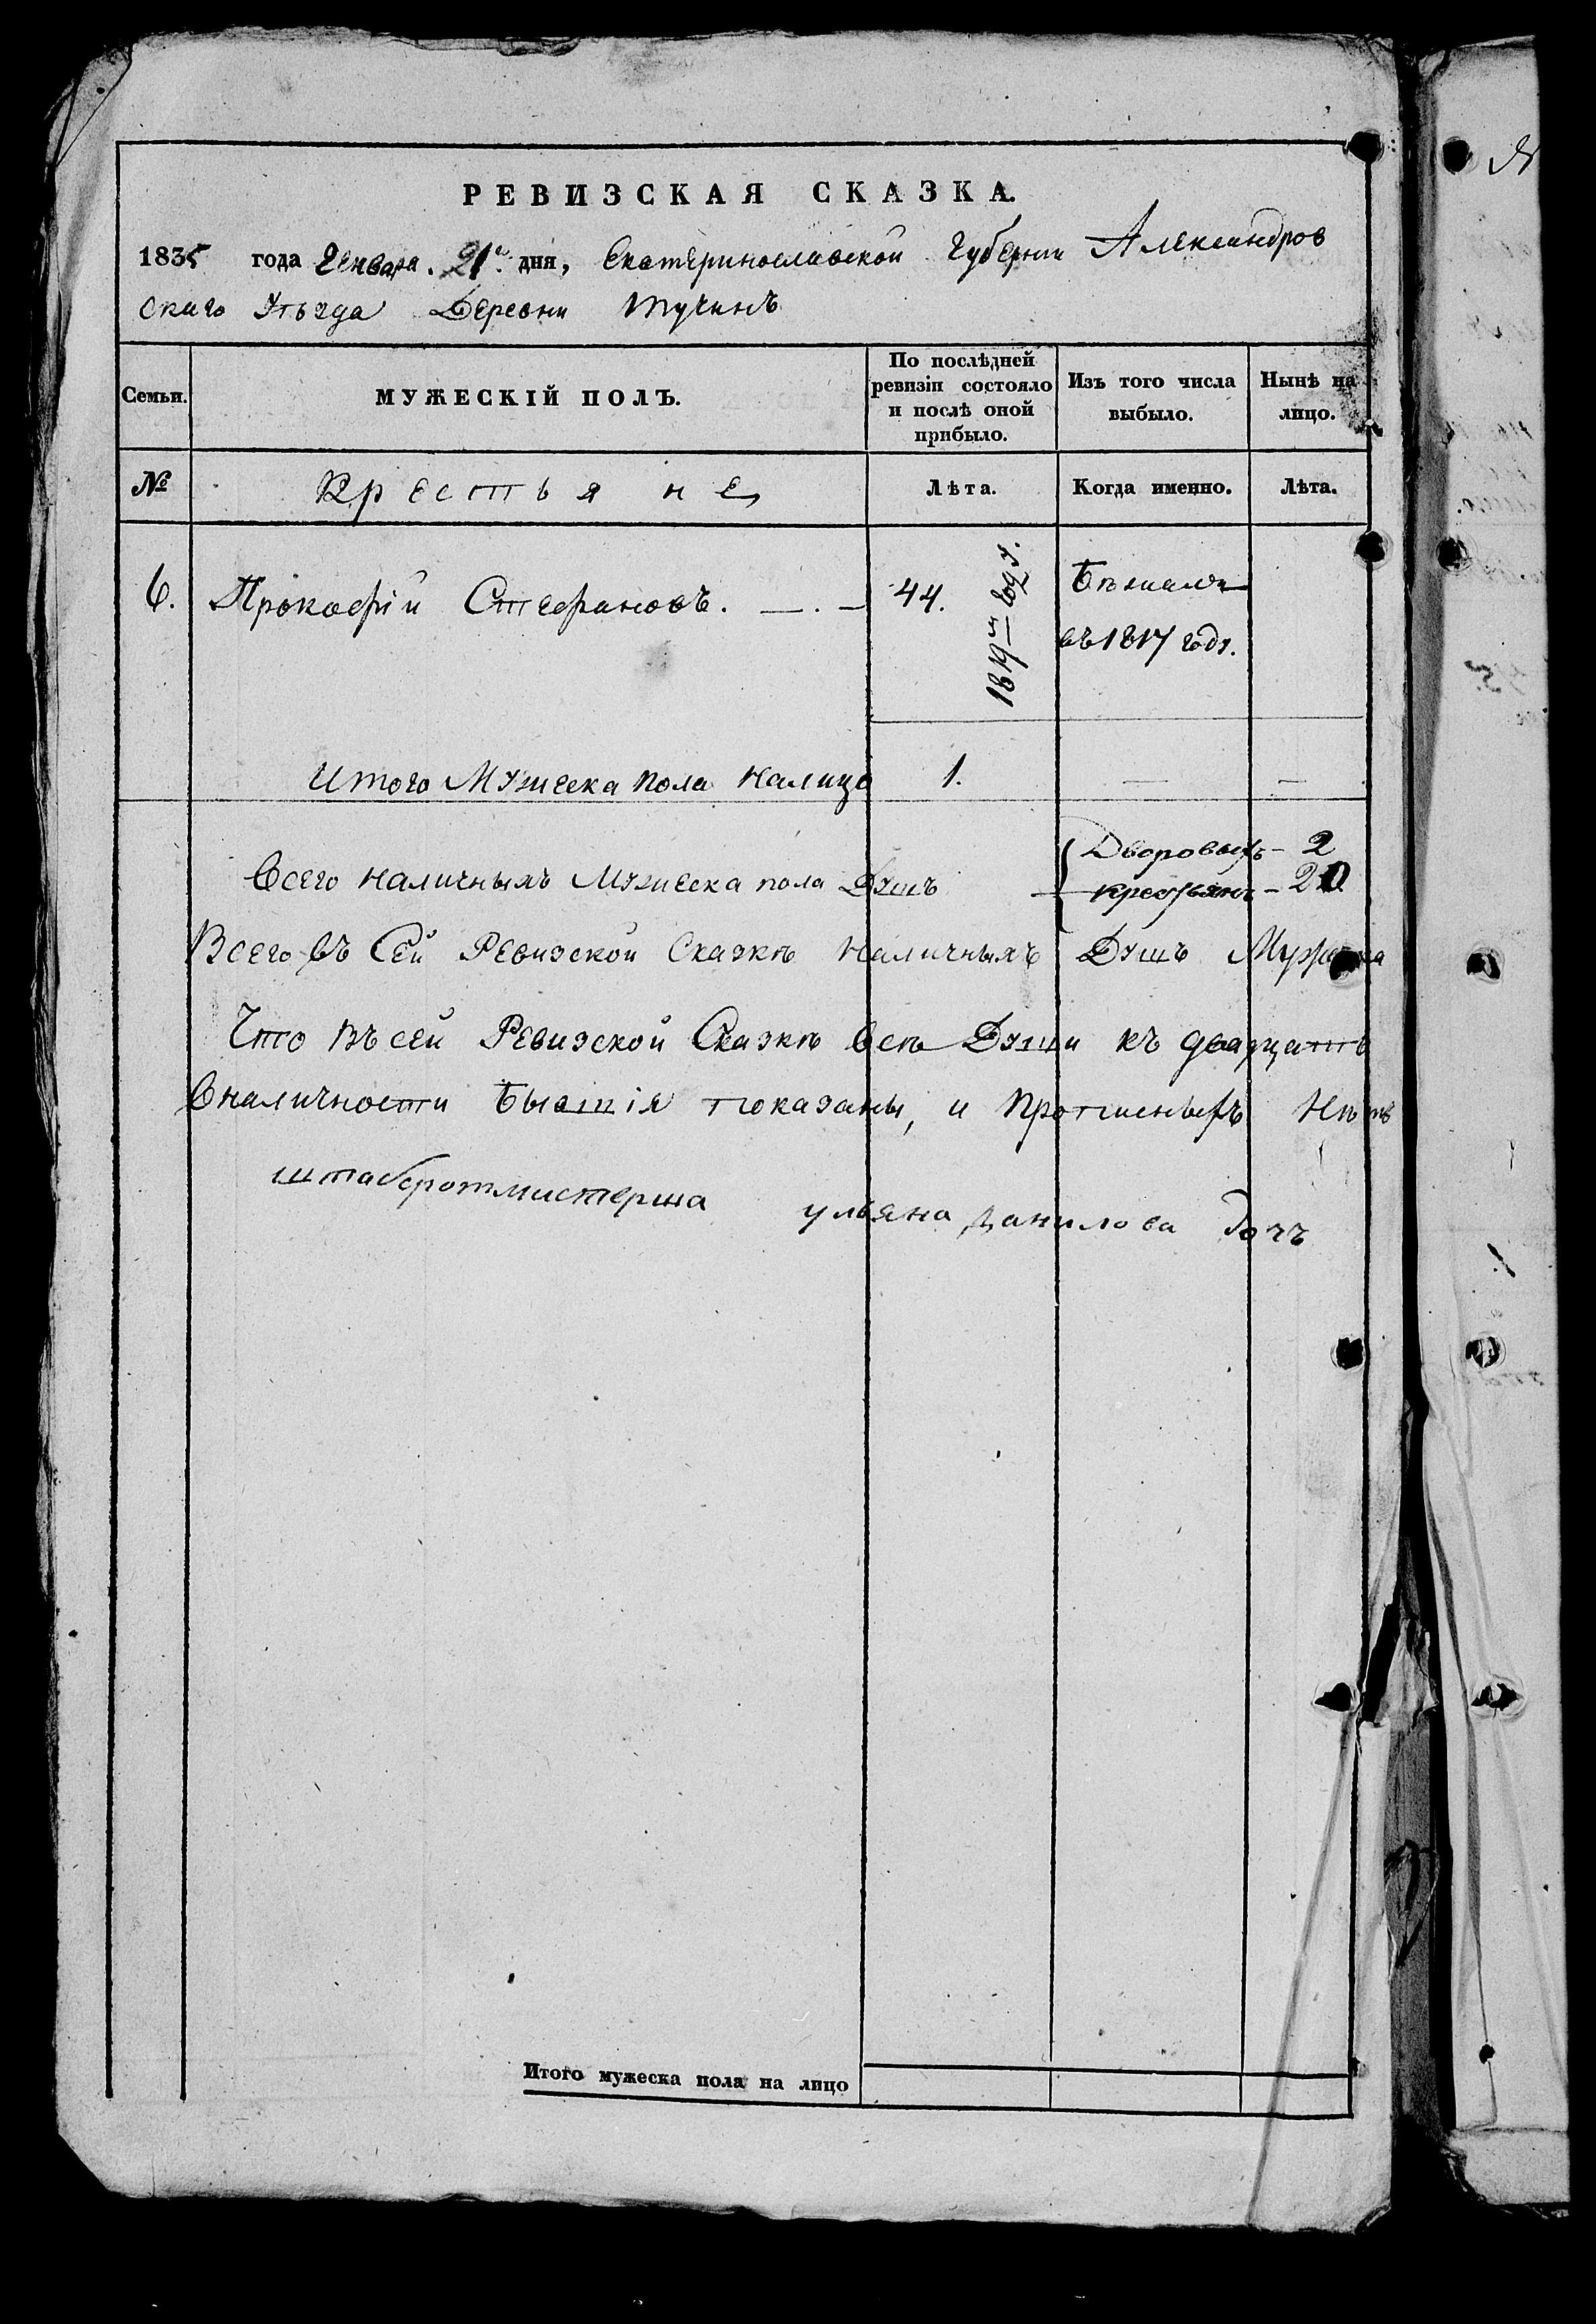 РЕВИЗСКАЯ СКАЗКА.
1835 года Генваря. 21го дня, Екатеринославской Губернии Александров
скаго Уѣзда Деревни Тучинъ
Семьи.
МУЖЕСКІЙ ПОЛЪ.
По послѣдней ревизіи состояло и послѣ оной прибыло.
Изъ того числа выбыло.
Нынѣ на лицо.
№
Крестьяне
Лѣта.
Когда именно.
Лѣта.
6. Прокофій Стефановъ. 44.
Бѣжалъ
въ 1817 году.
Итого Мужеска пола налицо 1. — —
Дворовыхъ - 2
Всего наличныхъ Мужеска пола Душъ
крестьянъ - 20
Всего въ Сей Ревизской Сказкѣ Наличныхъ Душъ Мужеска
Что въ сей Ревизской Сказкѣ всѣ Души къ двадцать
Вналичности Бытія показаны, и Прописныхъ Нѣтъ
штабсротмистерша ульяна данилова дочъ
Итого мужеска пола на лицо